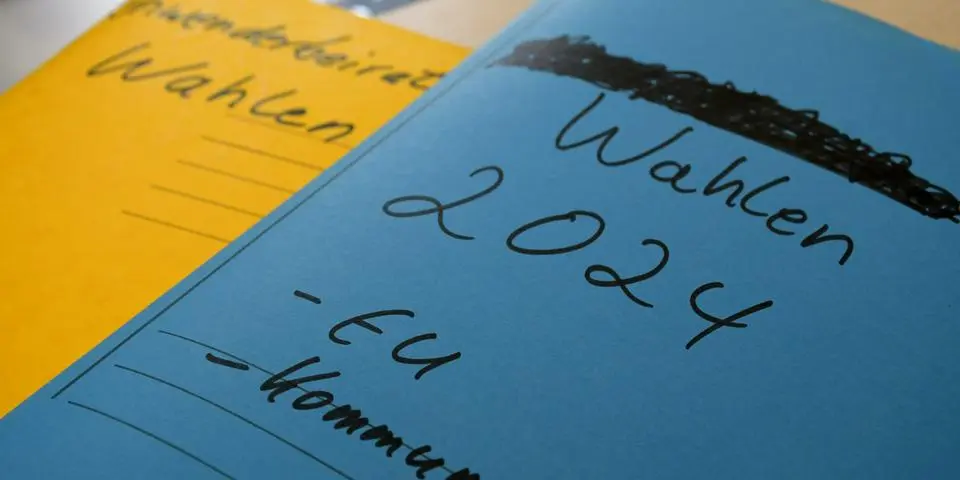 Wahlen
Wahlen
2024
- EU
- Kommun